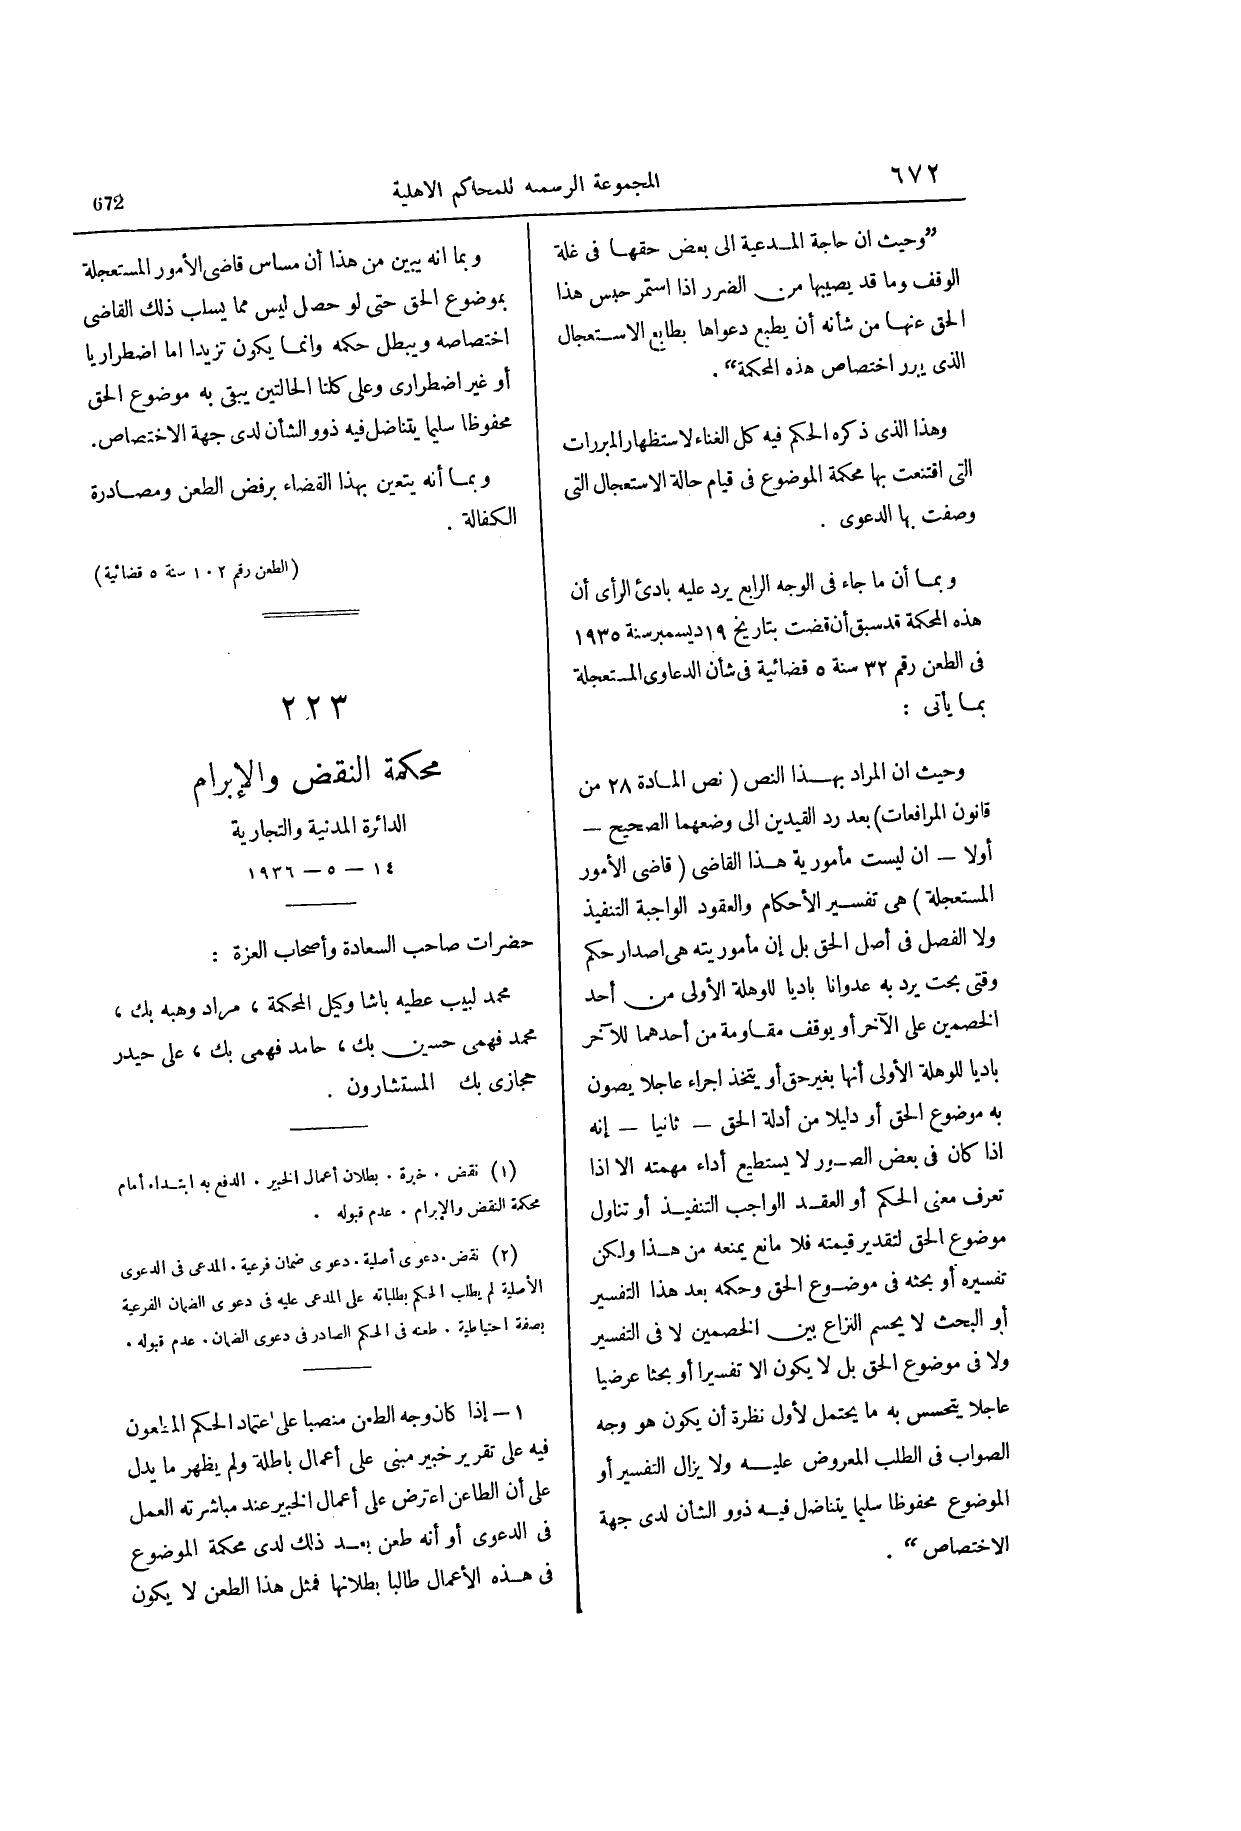 ٦٧٢
المجموعة الرسميه للمحاكم الاهلية
672
”وحيث ان حاجة المدعية الى بعض حقها فى غلة
الوقف وما قد يصيبها من الضرر اذا استمر حبس هذا
الحق عنها من شأنه أن يطبع دعواها بطابع الاستعجال
الذى يبرر اختصاص هذه المحكمة“ .
وهذا الذى ذكره الحكم فيه كل الغناء لاستظهار المبررات
التى اقتنعت بها محكمة الموضوع فى قيام حالة الاستعجال التى
وصفت بها الدعوى .
وبما أن ما جاء فى الوجه الرابع يرد عليه بادئ الرأى أن
هذه المحكمة قد سبق أن قضت بتاريخ ١٩ ديسمبر سنة ١٩٣٥
فى الطعن رقم ٣٢ سنة ٥ قضائية فى شأن الدعاوى المستعجلة
بما يأتى :
وحيث ان المراد بهذا النص ( نص المادة ٢٨ من
قانون المرافعات) بعد رد القيدين الى وضعهما الصحيح —
أولا — ان ليست مأمورية هذا القاضى ( قاضى الأمور
المستعجلة ) هى تفسير الأحكام والعقود الواجبة التنفيذ
ولا الفصل فى أصل الحق بل إن مأموريته هى اصدار حكم
وقتى بحت يرد به عدوانا باديا للوهلة الأولى من أحد
الخصمين على الآخر أو يوقف مقاومة من أحدهما للآخر
باديا للوهلة الأولى أنها بغير حق أو يتخذ اجراء عاجلا يصون
به موضوع الحق أو دليلا من أدلة الحق — ثانيا — إنه
اذا كان فى بعض الصور لا يستطيع أداء مهمته الا اذا
تعرف معنى الحكم أو العقد الواجب التنفيذ أو تناول
موضوع الحق لتقدير قيمته فلا مانع يمنعه من هذا ولكن
تفسيره أو بحثه فى موضوع الحق وحكمه بعد هذا التفسير
أو البحث لا يحسم النزاع بين الخصمين لا فى التفسير
ولا فى موضوع الحق بل لا يكون الا تفسيرا أو بحثا عرضيا
عاجلا يتحسس به ما يحتمل لأول نظرة أن يكون هو وجه
الصواب فى الطلب المعروض عليه ولا يزال التفسير أو
الموضوع محفوظا سليما يتناضل فيه ذوو الشأن لدى جهة
الاختصاص “ .
وبما انه يبين من هذا أن مساس قاضى الأمور المستعجلة
بموضوع الحق حتى لو حصل ليس مما يسلب ذلك القاضى
اختصاصه ويبطل حكمه وانما يكون تزيدا اما اضطراريا
أو غير اضطرارى وعلى كلتا الحالتين يبقى به موضوع الحق
محفوظا سليما يتناضل فيه ذوو الشأن لدى جهة الاختصاص.
وبما أنه يتعين بهذا القضاء برفض الطعن ومصادرة
الكفالة .
(الطعن رقم ١٠٢ سنة ٥ قضائية)
٢٢٣
محكمة النقض والإبرام
الدائرة المدنية والتجارية
١٤ — ٥ — ١٩٣٦
حضرات صاحب السعادة وأصحاب العزة :
محمد لبيب عطيه باشا وكيل المحكمة ، مراد وهبه بك ،
محمد فهمى حسين بك ، حامد فهمى بك ، على حيدر
حجازى بك المستشارون .
(١) نقض . خبرة . بطلان أعمال الخبير . الدفع به ابتداء أمام
محكمة النقض والإبرام . عدم قبوله .
(٢) نقض . دعوى أصلية . دعوى ضمان فرعية . المدعى فى الدعوى
الأصلية لم يطلب الحكم بطلباته على المدعى عليه فى دعوى الضمان الفرعية
بصفة احتياطية . طعنه فى الحكم الصادر فى دعوى الضمان . عدم قبوله .
١ — إذا كان وجه الطعن منصبا على اعتماد الحكم المطعون
فيه على تقرير خبير مبنى على أعمال باطلة ولم يظهر ما يدل
على أن الطاعن اعترض على أعمال الخبير عند مباشرته العمل
فى الدعوى أو أنه طعن بعد ذلك لدى محكمة الموضوع
فى هذه الأعمال طالبا بطلانها فمثل هذا الطعن لا يكون